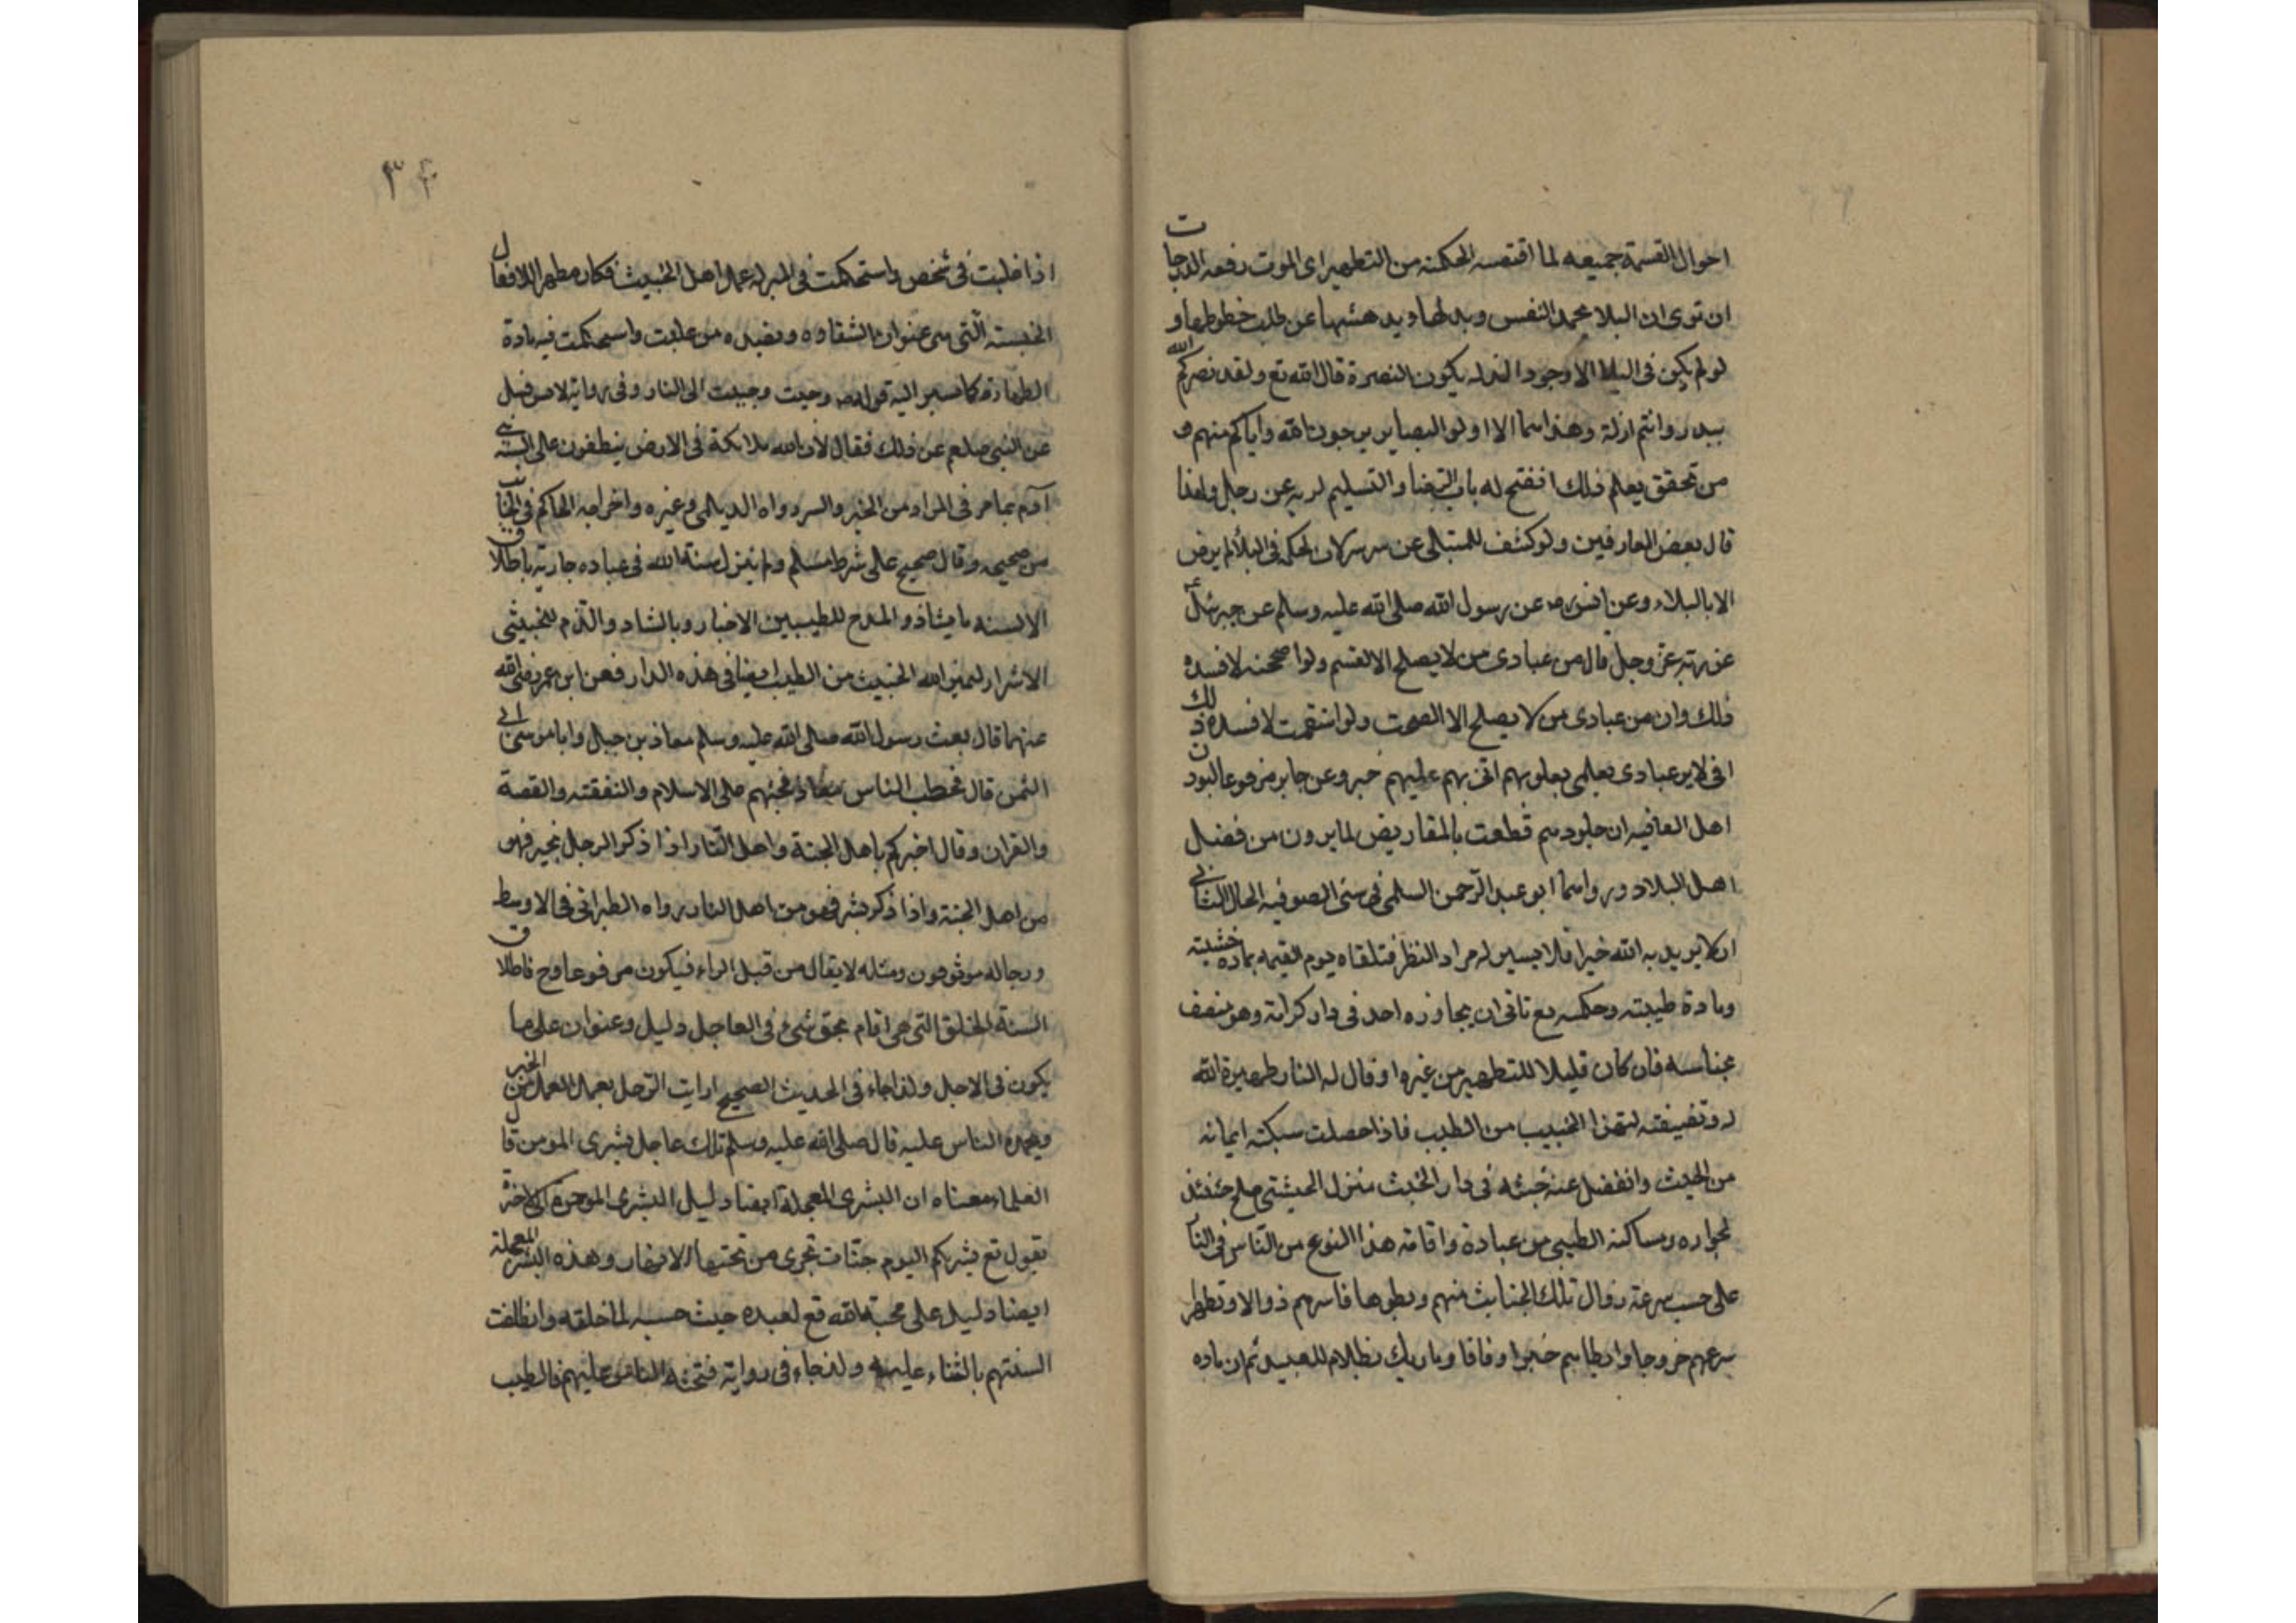 احوال القسمة جميعه لما اقتضته الحكمة من التطهير اى الموت رفعه الدرجات
ان ترى ان البلا محمد النفس ويدلها ويدهشها عن طلب حظوظها و
لو لم يكن فى البلا الا وجود الذله يكون النصرة قال الله تع ولقد نصركم الله
ببدر وانتم اذلة وهذا مما الا اولو البصاير يرجون الله واياكم منهم و
من تحقق بعلم ذلك انفتح له باب الرضا والتسليم لربه عن رجل ولهذا
قال بعض العارفين ولو كشف للمبتلى عن سر سريان الحكمة فى البلأ لم يرض
الا بالبلاء وعن انس رض عن رسول الله صلى الله عليه وسلم عن جبرئيل ع
عن ربه عز وجل قال من عبادى من لا يصلح الا القسم ولوا صححته لافسده
ذلك وان من عبادى من لا يصلح الا الصحت ولو اسقمت لافسده ذلك
انى لا دبر عبادى بعلمى بقلوبهم انى بهم عليهم خبر وعن جابر مرفوعا ليودن
اهل العافيه ان جلودهم قطعت بالمقاريض لما يرون من فضل
اهل البلاد ورواهما ابو عبد الرحمن السلمى فى سنى الصوفيه الحال الثانى
ان لا يريد به الله خيرا فلا يسير له مراد النظر فتلقاه يوم القيمه بماده خشيته
ومادة طيبته وحكمه تع تاتى ان يجاوزه احد فى دار كرامته وهو متصف
بجناسه فان كان قليلا للتطهير من غيره او قال له النار طهيرة الله
له وتضيفته لتهذا الخبيب من الطيب فاذا حصلت سبكته ايمانه
من الخبث وانفضل عنه خبثه فى دار الخبث منزل الخبيثى صلح حينئذ
لجواره ومساكنة الطيبى من عبادة واقامة هذا النوع من الناس فى النا
على حسب سرعة زوال تلك الجنايث منهم وبطوها فاسرهم ذوالا وتطهرا
سرعهم خروجا وابطاهم خبرا وفاقا وما ربك بظلام للعبيد ثم ان ماده
٣٤
اذا غلبت فى شخص واستحكمت فى المبر له عمال اهل الخبيث فكان مظهرا للافعال
الخبيثه التى هى عنوان الشقاوه وبضده من غلبت واستحكمت فيه مادة
الطهارة كما سير اليه قوله ص وجبت وجبت الى النار وفى رواية لا من قبل
عن النبى صلعم عن ذلك فقال لان لله ملائكة فى الارض ينطقون على السنة بنى
آدم بما هو فى المراد من الخير والسر رواه الديلمى وغيره واخراجه الحاكم فى الجنا
من صحيحه وقال صحيح على شرط مسلم ولم يزل سنة الله فى عباده جارية باطلاق
الالسنه بالثناء والمدح للطيبين الاخيار وبالثناء والذم للخبيثى
الاشرار ليميز الله الخبيث من الطيب ايضا فى هذه الدار فعن ابن عمر رضى الله
عنهما قال بعث رسول الله صلى الله عليه وسلم معاذ بن جبل وابا موسى الى
اليمن قال فخطب الناس معاذ فحثهم على الاسلام والتفقته والقصة
والقران وقال اخبركم باهل الجنة واهل النار اذا ذكر الرجل بخير فهو
من اهل الجنة واذا ذكر بشر فهو من اهل النار رواه الطبرانى فى الاوسط
ورجاله موثوقون ومثله لا يقال من قبل الراء فيكون مرفوعا وح فاطلاق
السنة الخلق التى هى اقلام بحق شئ فى العاجل دليل وعنوان على ما
يكون فى الاجل ولذا جاء فى الحديث الصحيح ارايت الرجل يعمل العمل من الخير
ويحمده الناس عليه قال صلى الله عليه وسلم تلك عاجل بشرى المومن قال
العلماء معناه ان البشرى المعجلة ايضا دليل البشرى الموخرة الى الاخرة
يقول تع بشريكم اليوم جنات تجرى من تحتها الانهار وهذه البشرى المعجلة
ايضا دليل على محبة الله تع لعبده حيث حسبه لما خلقه وانطلقت
السنتهم بالثناء عليهم ولذا جاء فى رواية فتحثه الناس عليهم فالطيب